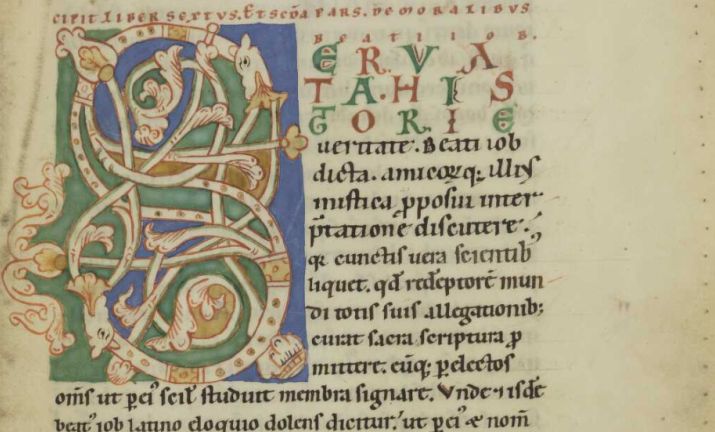 CIPIT LIBER SEXTVS. ET SCDA PARS. DE MORALIBVS
BEATI IOB.
SERVATA HISTORIE
ueritate. Beati iob
dicta. amicorq; illiꝰ
mistica ꝓposui inter
p̄tatione discutere.
qꝛ cunctis uera scientib;
liquet. qd̄ redēptorē mun
di totis suis allegationib;
curat sacra scriptura ꝓ
mittere. eūq; ꝑ electos
om̄s ut ꝑ eiꝰ studuit membra signare. Vnde ⁊ isdē
beatꝰ iob latino eloquio dolens dicitur. ut ꝑ eiꝰ nom̄